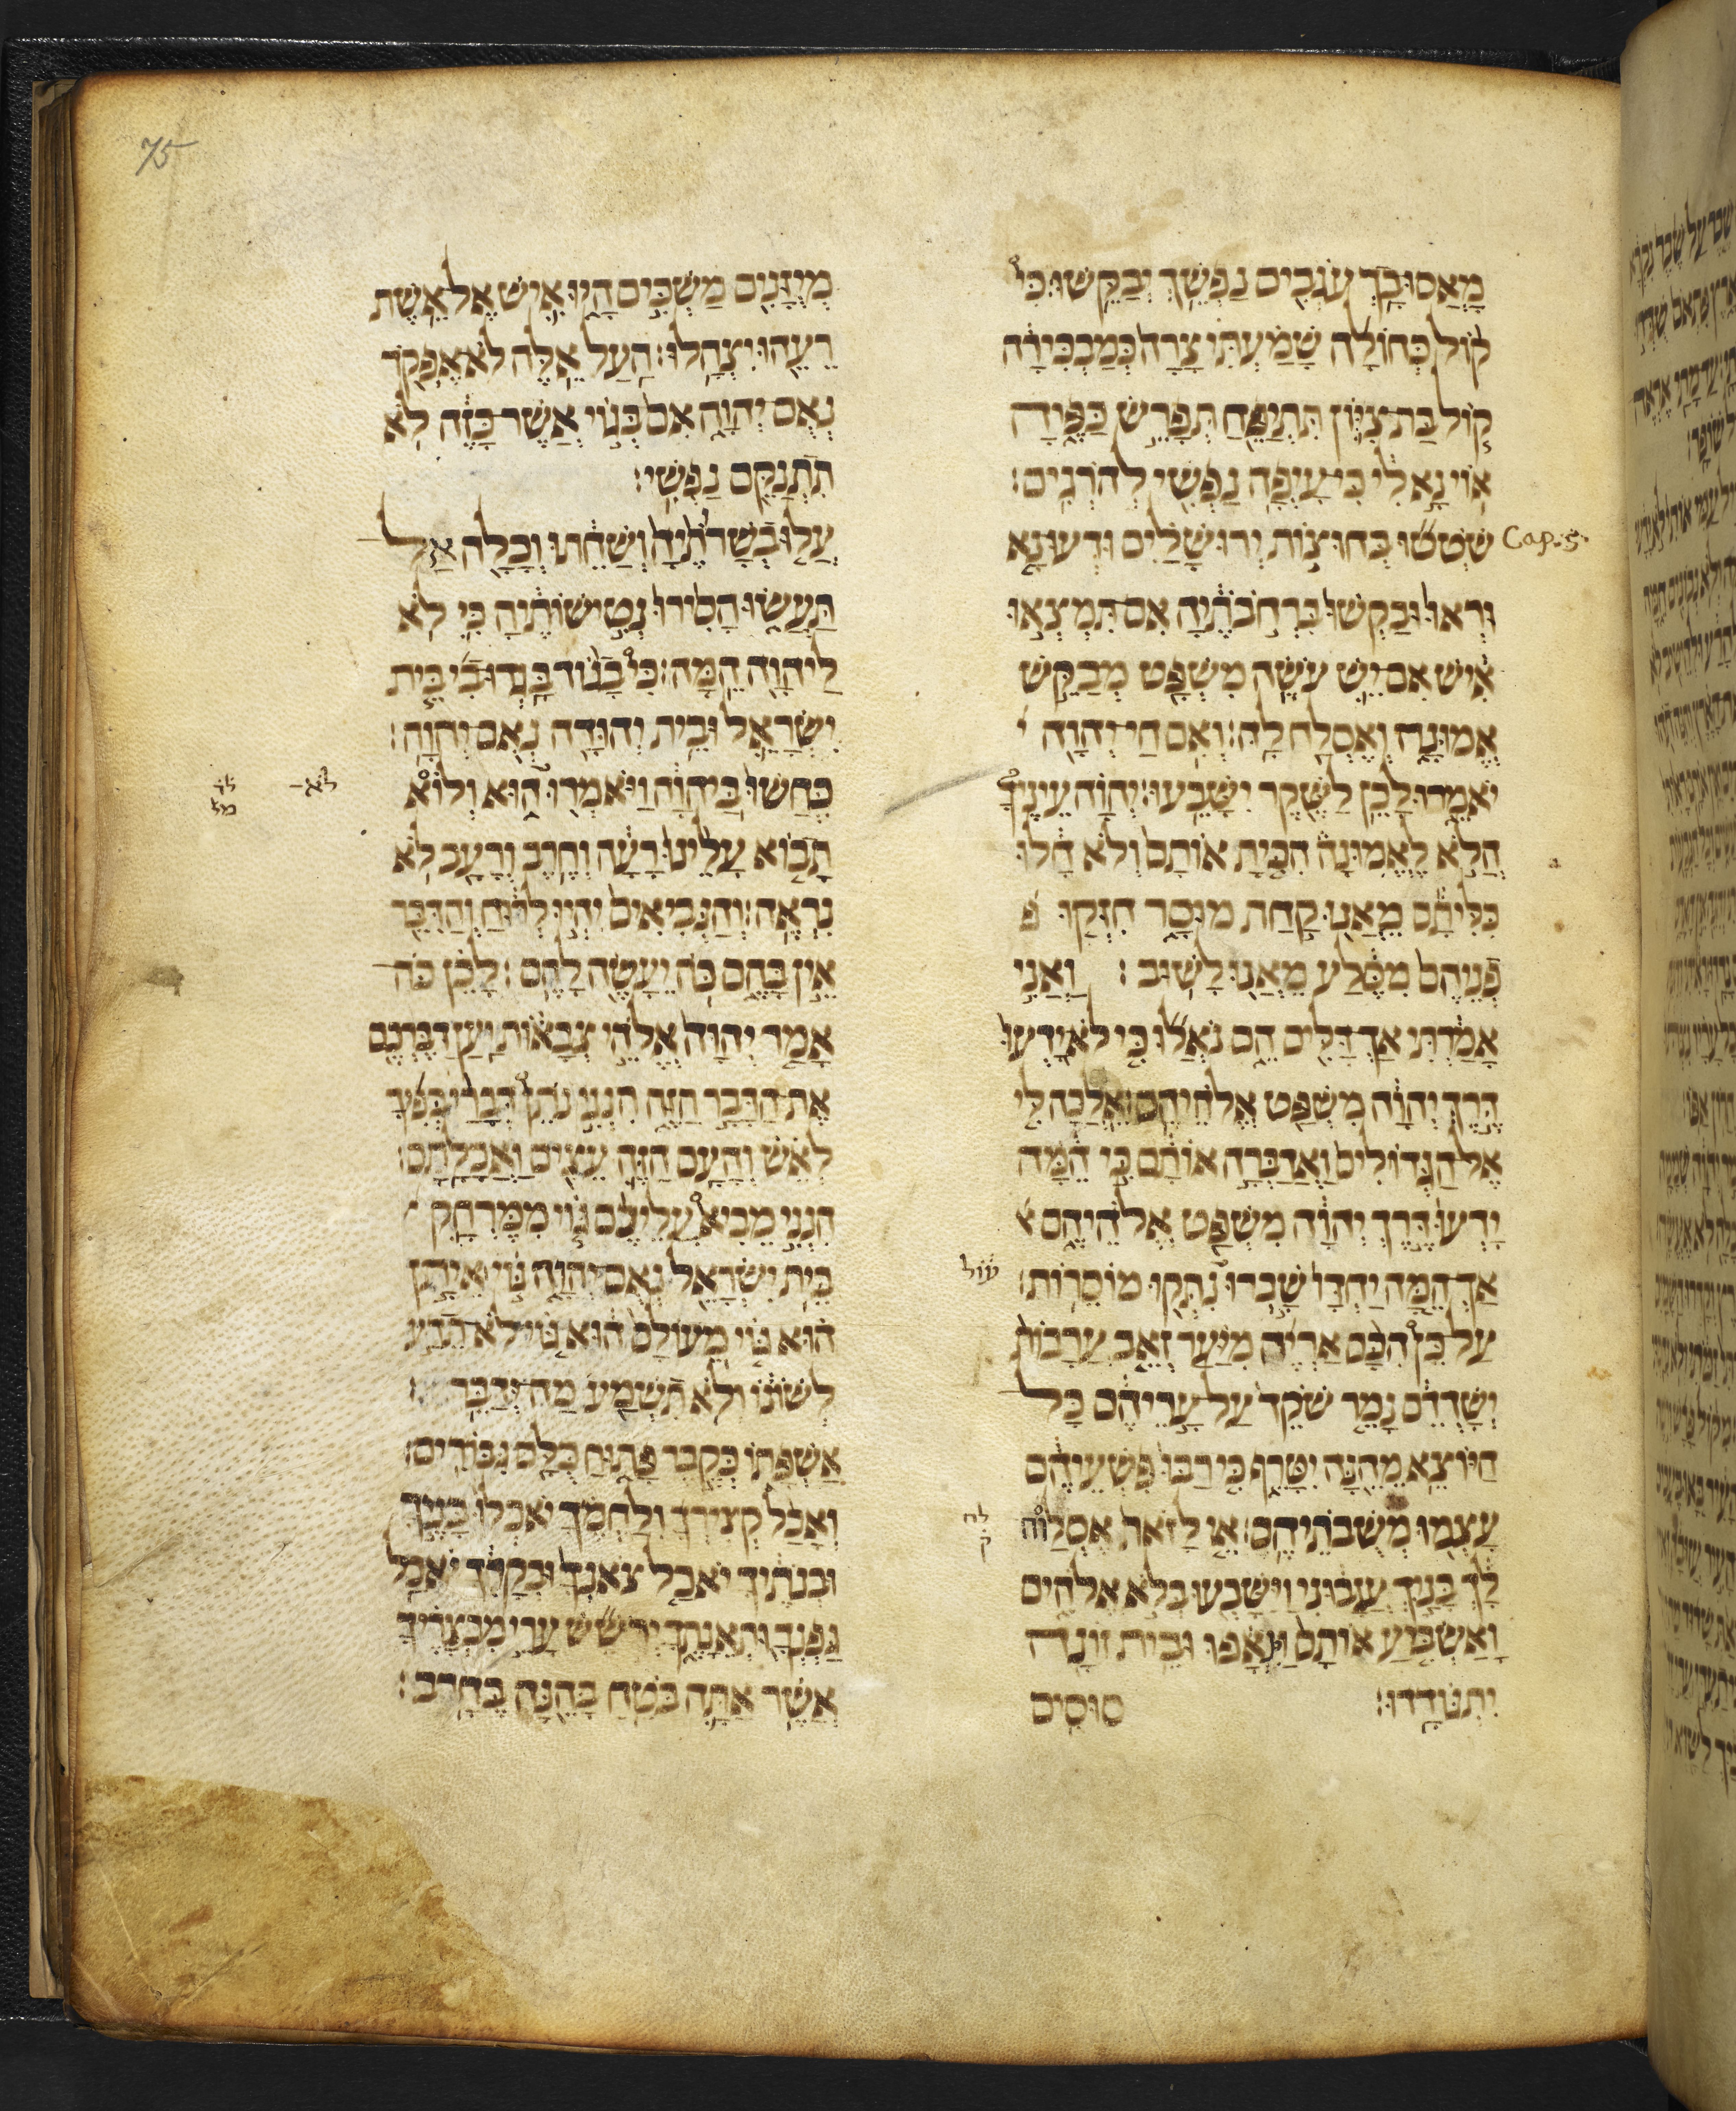 75
מאסו בך עגבים נפשך יבקשו: כי
קול כחולה שמעתי צרה כמבכירה
קול בת ציון תתיפח תפרש כפיה
אוי נא לי כי עיפה נפשי להרגים:
Cap. 5.
שטטו בחוצות ירושלים ודעו נא
וראו ובקשו ברחבתיה אם תמצאו
איש אם יש עשה משפט מבקש
אמונה ואסלח לה: ואם חי יהוה י
יאמרו לכן לשקר ישבעו: יהוה עיניך
הלא לאמונה הכית אותם ולא חלו
כליתם מאנו קחת מוסר חזקו פ
פניהם מסלע מאנו לשוב: ואני
אמרתי אך דלים הם נאלו כי לא ידעו
דרך יהוה משפט אלהיהם: אלכה לי
אל הגדולים ואדברה אותם כי המה
ידעו דרך יהוה משפט אלהיהם א
אך המה יחדו שברו עול נתקו מוסרות:
על כן הכם אריה מיער זאב ערבות
ישדדם נמר שקד על עריהם כל
היוצא מהנה יטרף כי רבו פשעיהם
עצמו משבותיהם: אי לזאת אסלוח
לך בניך עזבוני וישבעו בלא אלהים
ואשביע אותם וינאפו ובית זונה
יתגודדו: סוסים
מיזנים משכים היו איש אל אשת
רעהו יצהלו: העל אלה לא אפקד
נאם יהוה אם בגוי אשר כזה לא
תתנקם נפשי:
עלו בשרותיה ושחתו וכלה אל
תעשו הסירו נטישותיה כי לא
ליהוה המה: כי בגוד בגדו בי בית
ישראל ובית יהודה נאם יהוה:
כחשו ביהוה ויאמרו לא הוא ולוא
תבוא עלינו רעה וחרב ורעב לא
נראה: והנביאים יהיו לרוח והדבר
אין בהם כה יעשה להם: לכן כה
אמר יהוה אלהי צבאות יען דברכם
את הדבר הזה הנני נתן דברי בפיך
לאש והעם הזה עצים ואכלתם:
הנני מביא עליכם גוי ממרחק
בית ישראל נאם יהוה גוי איתן
הוא גוי מעולם הוא גוי לא תדע
לשונו ולא תשמע מה ידבר:
אשפתו כקבר פתוח כלם גבורים:
ואכל קצירך ולחמך יאכלו בניך
ובנתיך יאכל צאנך ובקרך יאכל
גפנך ותאנתך ירשש ערי מבצריך
אשר אתה בטח בהנה בחרב: